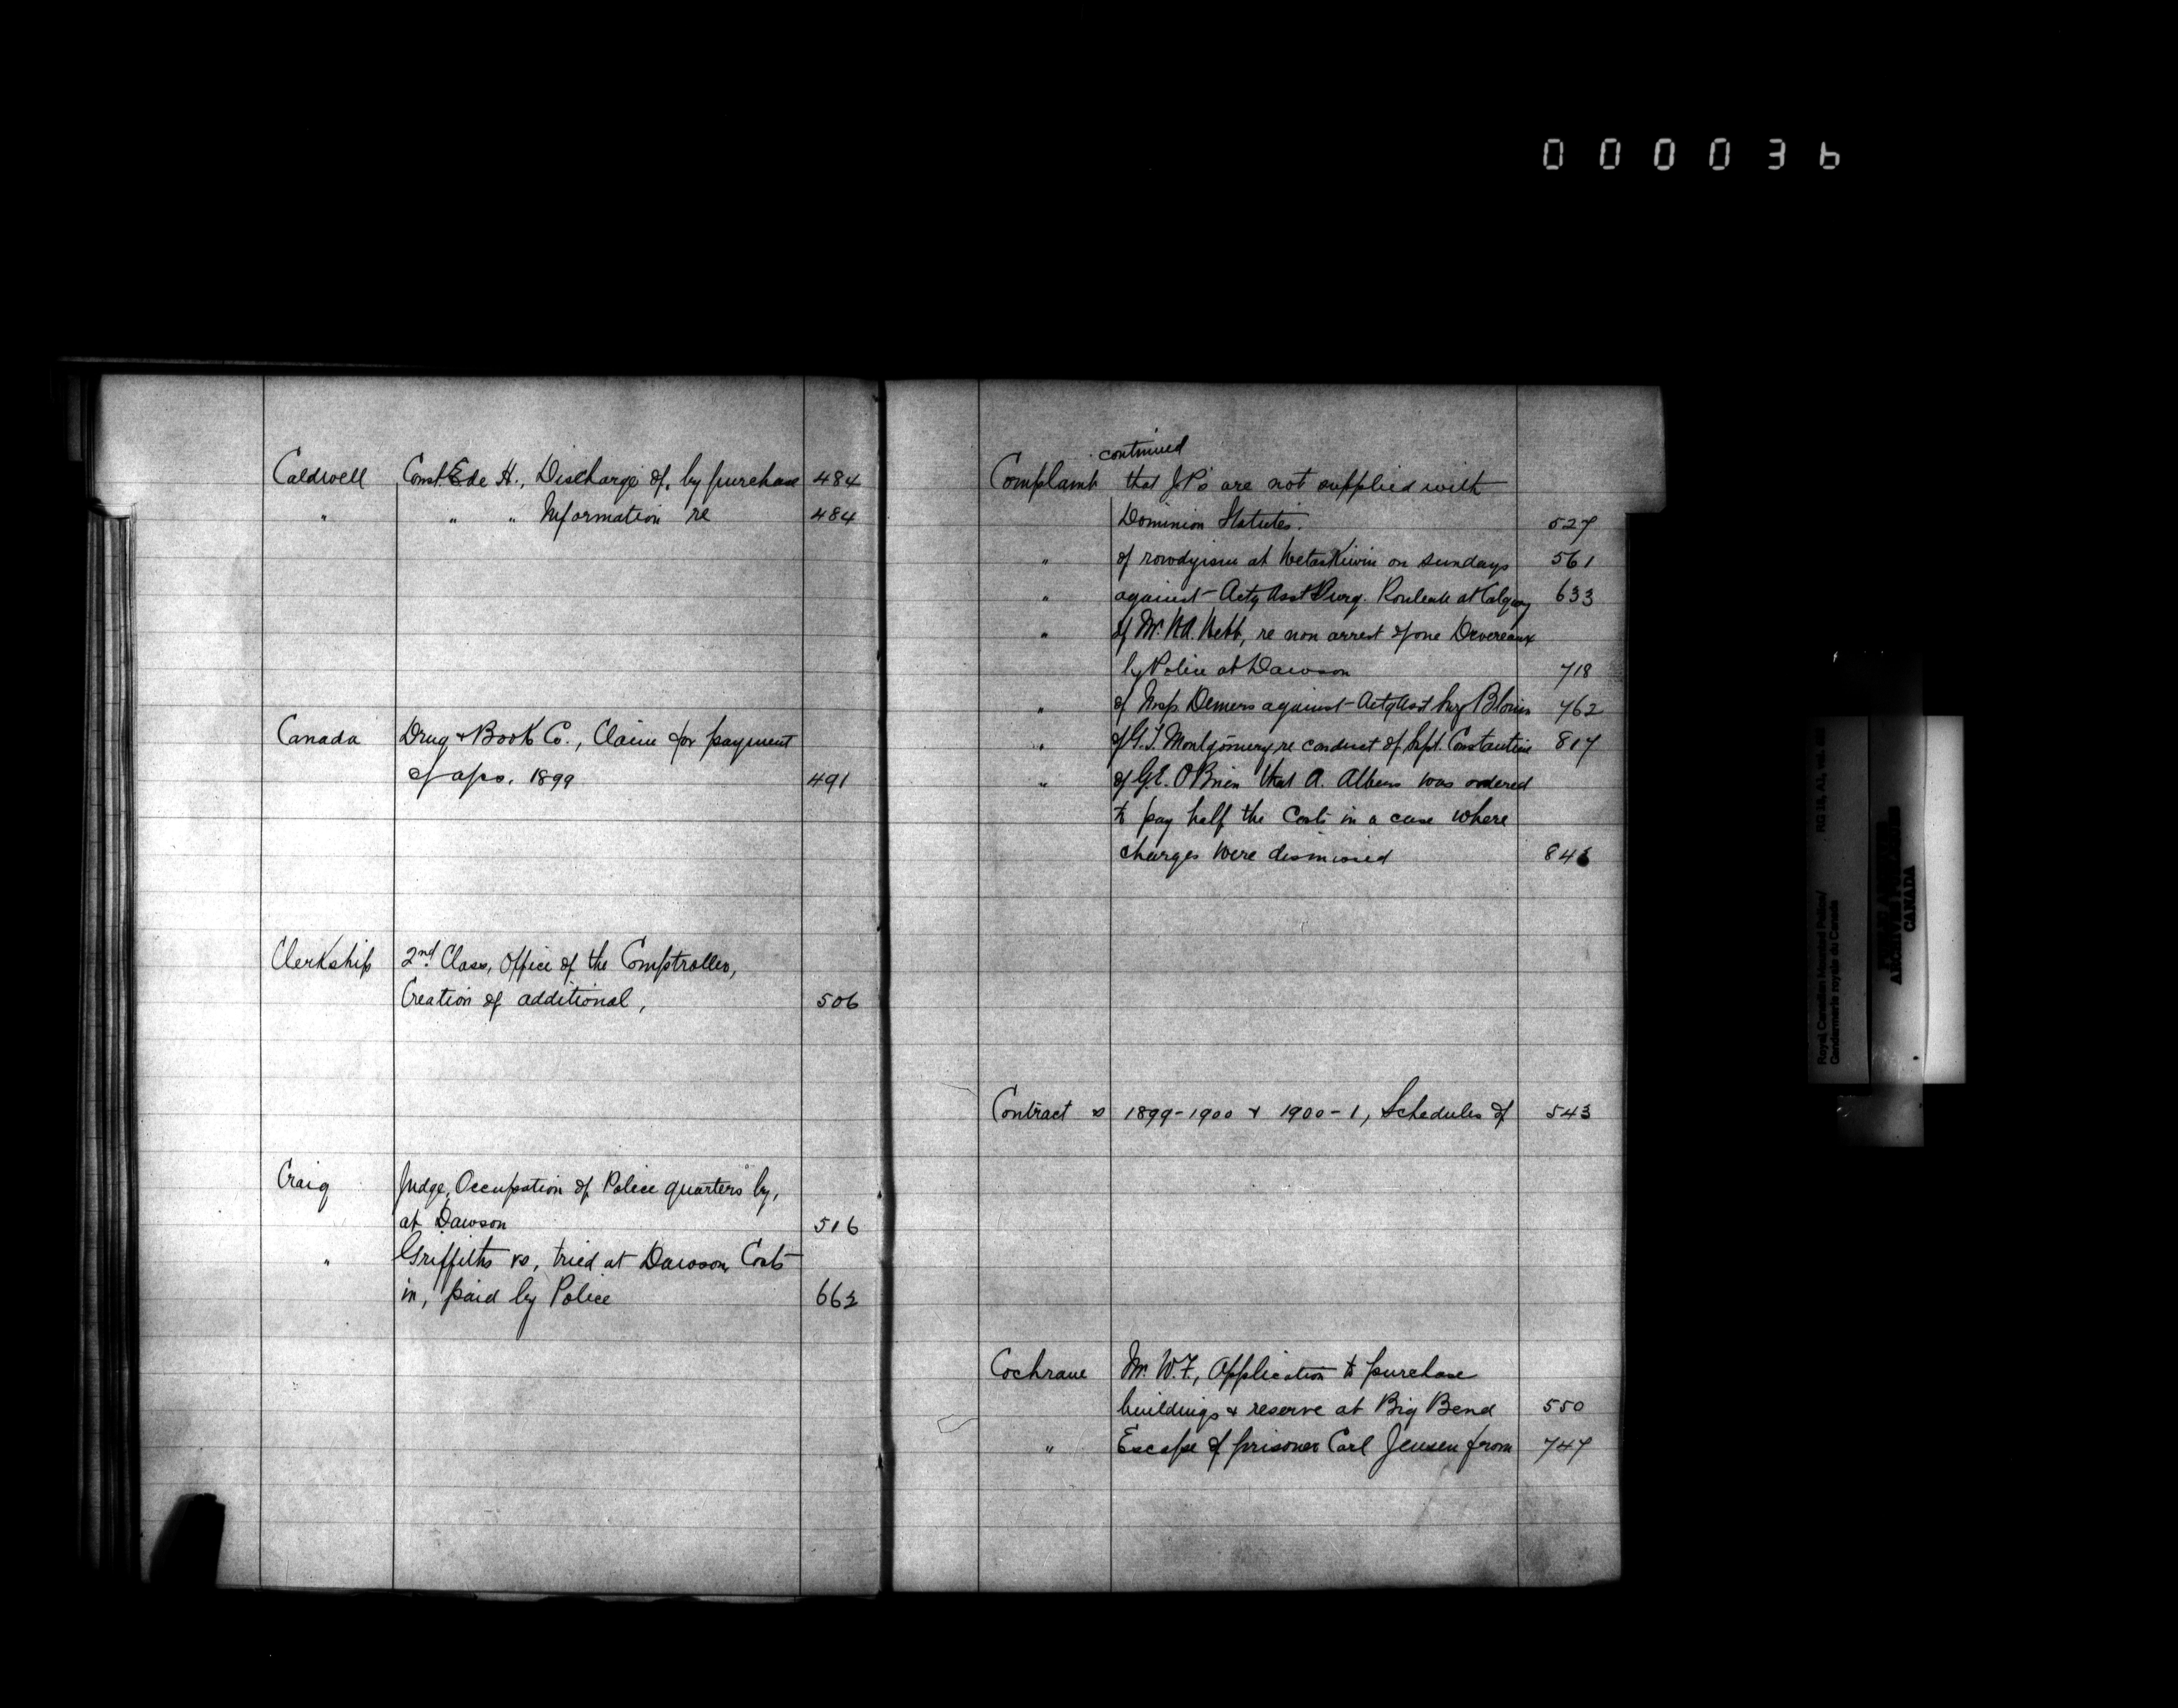 000036
Caldwell Const. Ede H., Discharge of, by purchase 484
" " " Information re 484
Canada Drug & Book Co., Claim for payment
of a/cs. 1899 491
Clerkship 2nd Class, Office of the Comptroller,
Creation of additional, 506
Craig Judge, Occupation of Police quarters by,
at Dawson 516
" Griffiths vs, tried at Dawson, Costs
in, paid by Police 662
continued
Complaint that J.P's are not supplied with
Dominion Statutes. 527
" of rowdyism at Wetaskiwin on sundays 561
" against Actg Asst Surg. Rouleau at Calgary 633
" of Mr. W.A. Webb, re non arrest of one Devereaux
by Police at Dawson 718
" of Insp. Demers against Actg Asst Surg Blouin 762
" of G.T. Montgomery re conduct of Supt. Constantine 817
" of G.E. O'Brien that A. Albers was ordered
to pay half the Costs in a case where
charges were dismissed
Contract s 1899-1900 & 1900-1, Schedules of 543
Cochrane Mr. W.F., Application to purchase
buildings & reserve at Big Bend 550
" Escape of prisoner Carl Jensen from 747
RG 18, A1, vol.
Royal Canadian Mounted Police/
Gendarmerie royale du Canada
CANADA